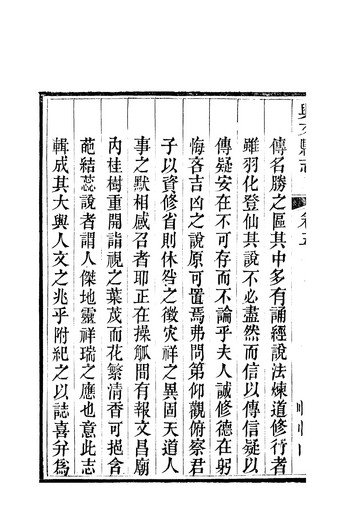 興文縣志
卷五
傳名勝之區其中多有誦經說法煉道修行者
雖羽化登仙其說不必盡然而信以傳信疑以
傳疑安在不可存而不論乎夫人誠修德在躬
悔吝吉凶之說原可置焉弗問第仰觀俯察君
子以資修省則休咎之徵灾祥之異固天道人
事之默相感召者耶正在操觚間有報文昌廟
內桂樹重開詣視之葉茂而花繁清香可挹含
葩結蕊說者謂人傑地靈祥瑞之應也意此志
輯成其大興人文之兆乎附紀之以誌喜弁爲